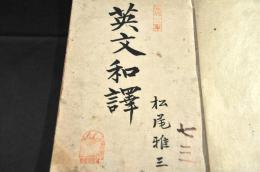 英文和譯
松尾雅三